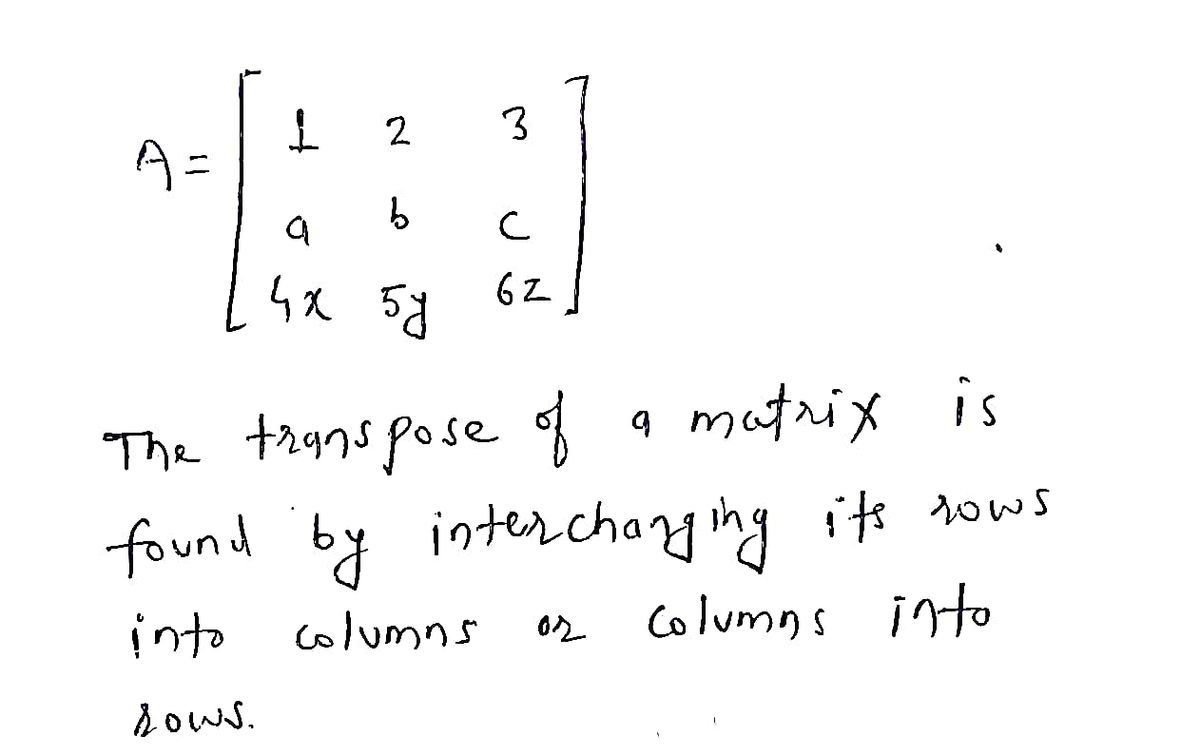 A = [ 1 2 3
a b c
4x 5y 6z ]
The transpose of a matrix is
found by interchanging its rows
into columns or columns into
rows.